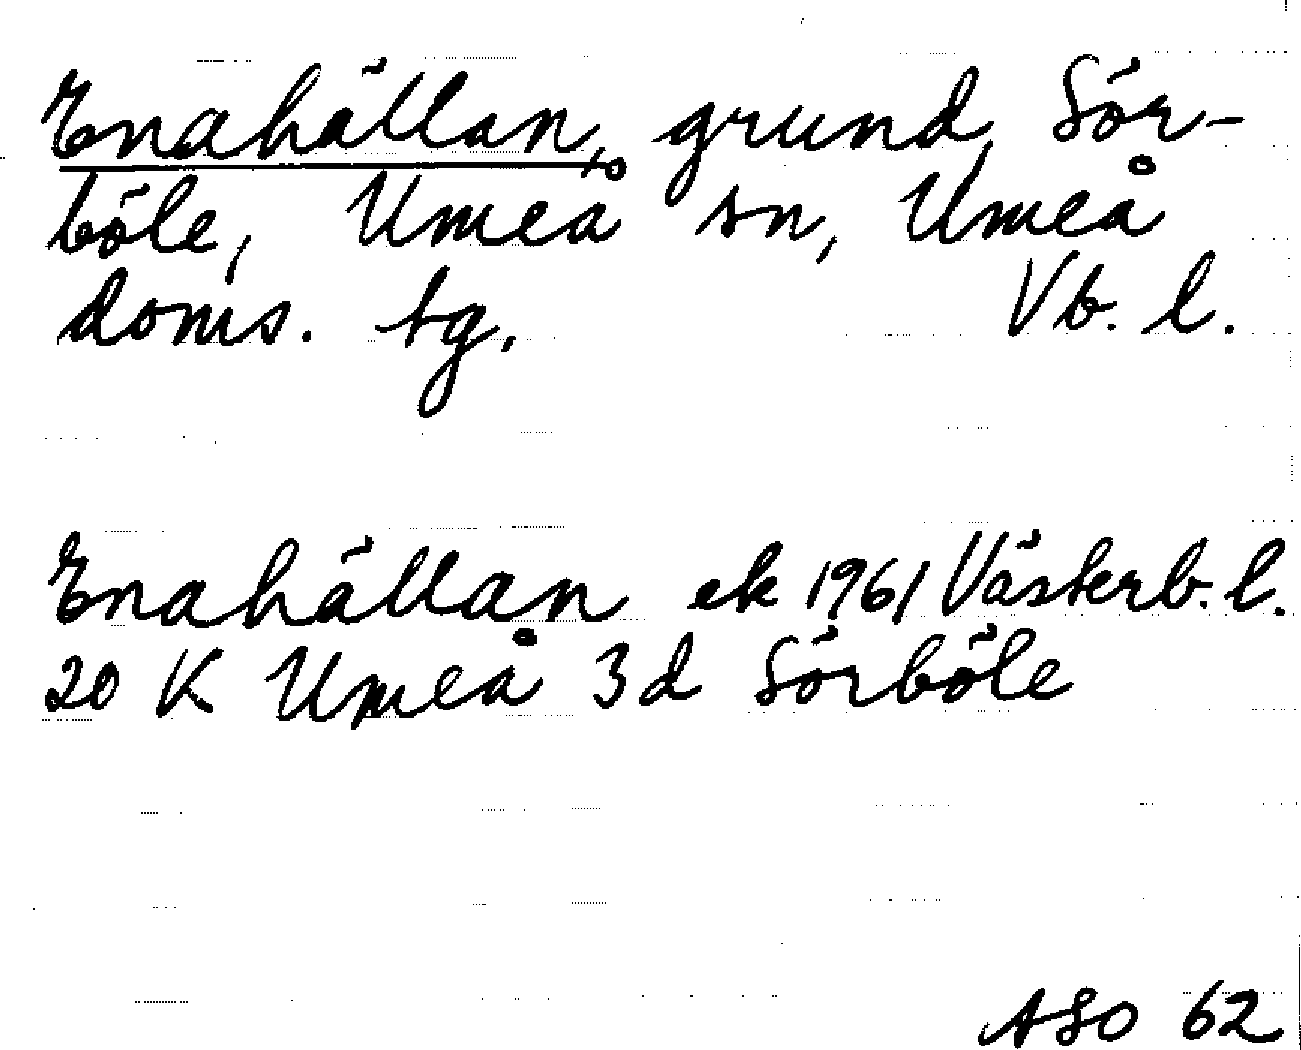 Enahällan, grund, Sör-
böle, Umeå sn, Umeå
doms. tg. Vb. l.
Enahällan ek 1961 Västerb. l.
20 K Umeå 3d Sörböle
ASO 62